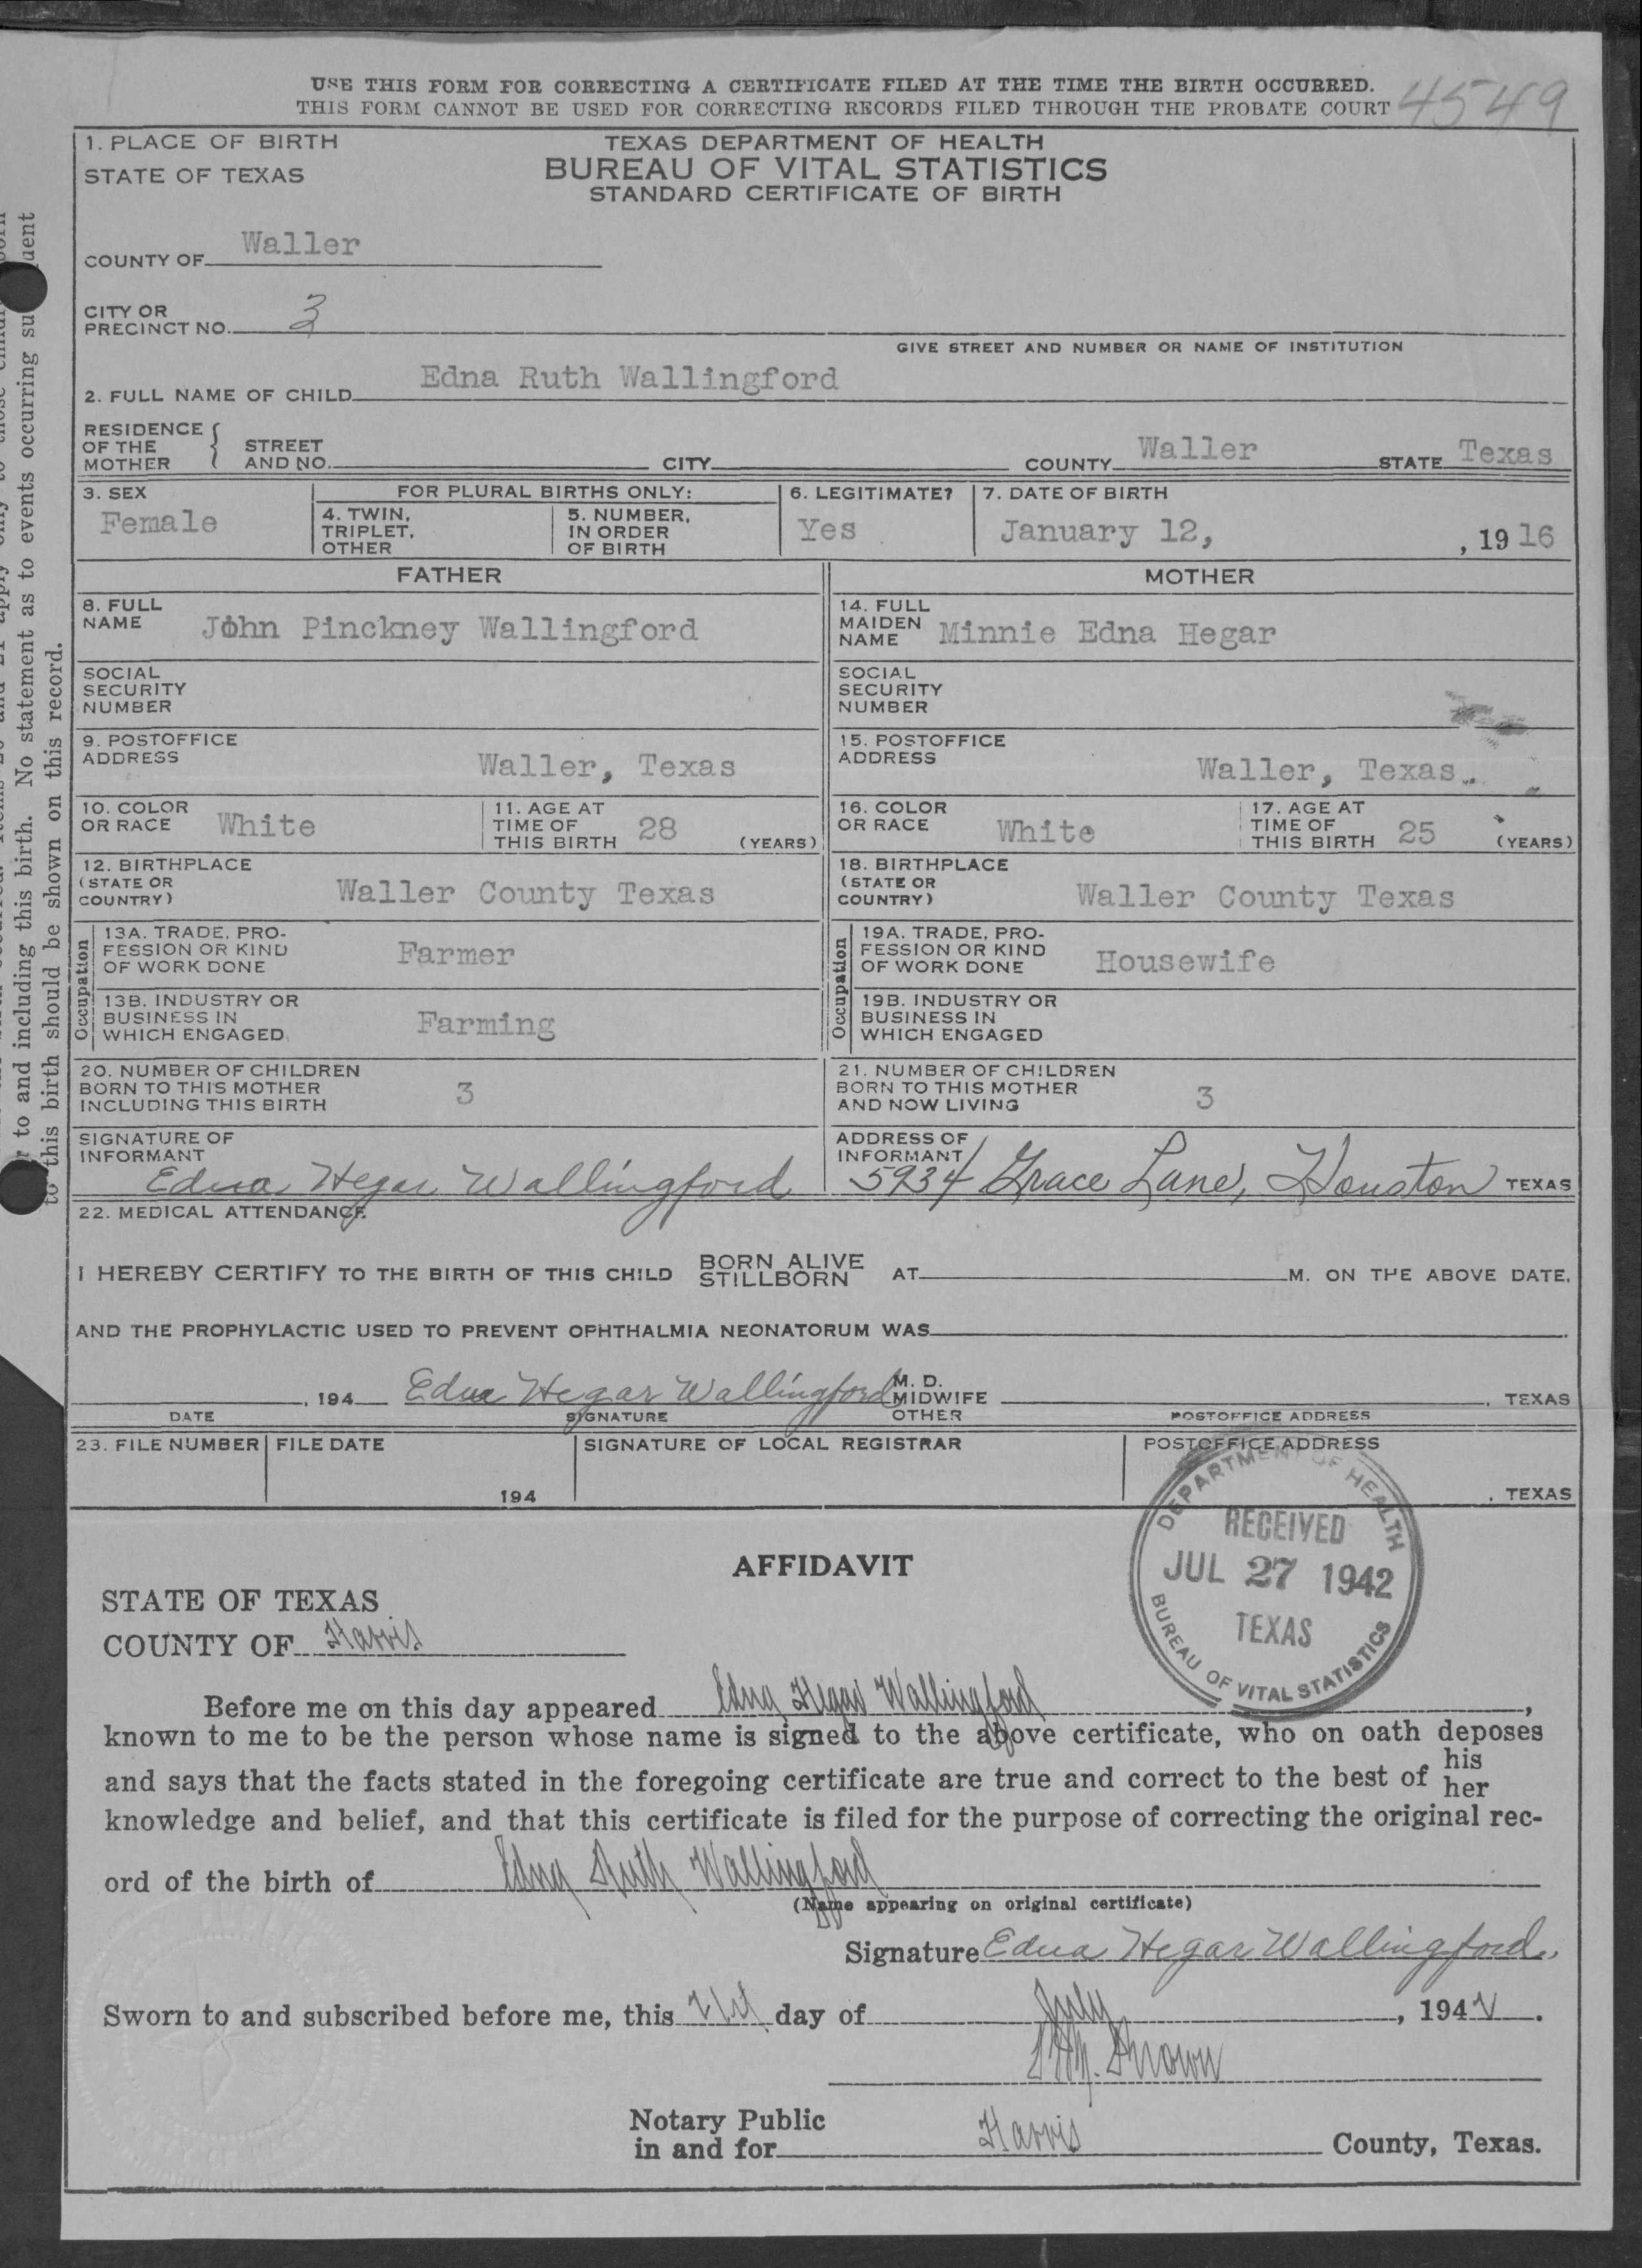 USE THIS FORM FOR CORRECTING A CERTIFICATE FILED AT THE TIME THE BIRTH OCCURRED.
THIS FORM CANNOT BE USED FOR CORRECTING RECORDS FILED THROUGH THE PROBATE COURT 4549
1. PLACE OF BIRTH
STATE OF TEXAS
TEXAS DEPARTMENT OF HEALTH
BUREAU OF VITAL STATISTICS
STANDARD CERTIFICATE OF BIRTH
COUNTY OF Waller
CITY OR
PRECINCT NO. 3
GIVE STREET AND NUMBER OR NAME OF INSTITUTION
2. FULL NAME OF CHILD Edna Ruth Wallingford
RESIDENCE
OF THE
MOTHER
STREET
AND NO. CITY COUNTY Waller STATE Texas
3. SEX
Female
FOR PLURAL BIRTHS ONLY:
4. TWIN,
TRIPLET,
OTHER
5. NUMBER,
IN ORDER
OF BIRTH
6. LEGITIMATE?
Yes
7. DATE OF BIRTH
January 12, , 19 16
FATHER
MOTHER
8. FULL
NAME John Pinckney Wallingford
14. FULL
MAIDEN
NAME Minnie Edna Hegar
SOCIAL
SECURITY
NUMBER
SOCIAL
SECURITY
NUMBER
9. POSTOFFICE
ADDRESS Waller, Texas
15. POSTOFFICE
ADDRESS Waller, Texas.
10. COLOR
OR RACE White
11. AGE AT
TIME OF
THIS BIRTH 28 (YEARS)
16. COLOR
OR RACE White
17. AGE AT
TIME OF
THIS BIRTH 25 (YEARS)
12. BIRTHPLACE
(STATE OR
COUNTRY) Waller County Texas
18. BIRTHPLACE
(STATE OR
COUNTRY) Waller County Texas
Occupation
13A. TRADE, PRO-
FESSION OR KIND
OF WORK DONE Farmer
Occupation
19A. TRADE, PRO-
FESSION OR KIND
OF WORK DONE Housewife
13B. INDUSTRY OR
BUSINESS IN
WHICH ENGAGED Farming
19B. INDUSTRY OR
BUSINESS IN
WHICH ENGAGED
20. NUMBER OF CHILDREN
BORN TO THIS MOTHER
INCLUDING THIS BIRTH 3
21. NUMBER OF CHILDREN
BORN TO THIS MOTHER
AND NOW LIVING 3
SIGNATURE OF
INFORMANT
Edna Hegar Wallingford
ADDRESS OF
INFORMANT
5934 Grace Lane, Houston TEXAS
22. MEDICAL ATTENDANCE
I HEREBY CERTIFY TO THE BIRTH OF THIS CHILD BORN ALIVE
STILLBORN AT M. ON THE ABOVE DATE,
AND THE PROPHYLACTIC USED TO PREVENT OPHTHALMIA NEONATORUM WAS .
, 194 Edna Hegar Wallingford M. D.
MIDWIFE
OTHER , TEXAS
DATE SIGNATURE POSTOFFICE ADDRESS
23. FILE NUMBER FILE DATE SIGNATURE OF LOCAL REGISTRAR POSTOFFICE ADDRESS
194 , TEXAS
DEPARTMENT OF HEALTH
RECEIVED
JUL 27 1942
TEXAS
BUREAU OF VITAL STATISTICS
AFFIDAVIT
STATE OF TEXAS
COUNTY OF Harris
Before me on this day appeared Edna Hegar Wallingford ,
known to me to be the person whose name is signed to the above certificate, who on oath deposes
and says that the facts stated in the foregoing certificate are true and correct to the best of his
her
knowledge and belief, and that this certificate is filed for the purpose of correcting the original rec-
ord of the birth of Edna Ruth Wallingford
(Name appearing on original certificate)
Signature Edna Hegar Wallingford.
Sworn to and subscribed before me, this 21st day of July , 1942 .
Brown
Notary Public
in and for Harris County, Texas.
to and including this birth. No statement as to events occurring
to this birth should be shown on this record.